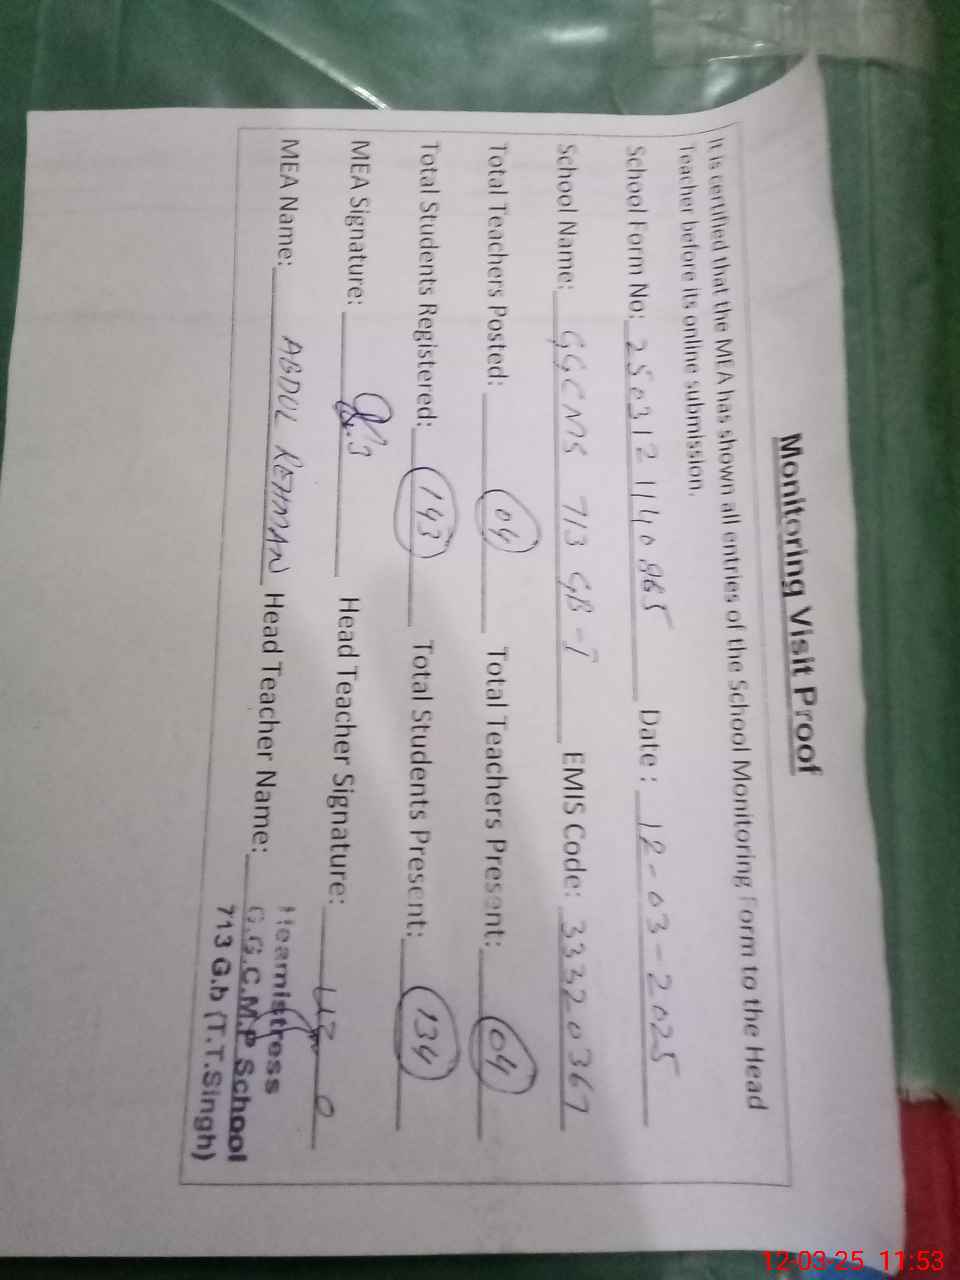 Monitoring Visit Proof
It is certified that the MEA has shown all entries of the School Monitoring Form to the Head
Teacher before its online submission.
School Form No: 250312 1140865 Date : 12-03-2025
School Name: GGCMS 713 GB-I EMIS Code: 33320367
Total Teachers Posted: 04 Total Teachers Present: 04
Total Students Registered: 143 Total Students Present: 134
MEA Signature: Head Teacher Signature:
MEA Name: ABDUL REHMAN Head Teacher Name:
Heamistress
G.G.C.M.P School
713 G.b (T.T.Singh)
12-03-25 11:53